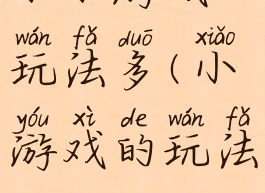 wán fǎ duō xiǎo
玩法多(小
yóu xì de wán fǎ
游戏的玩法